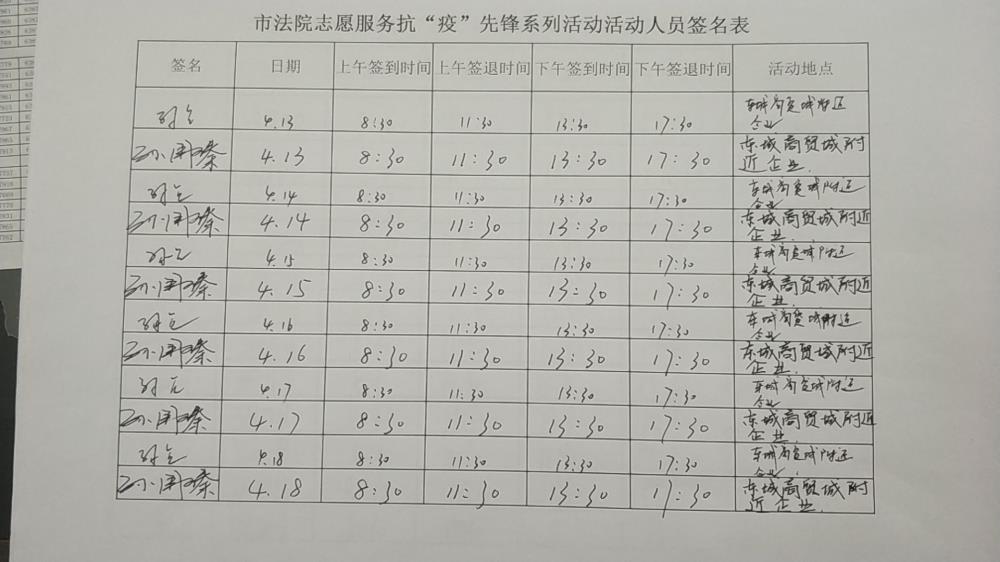 市法院志愿服务抗“疫”先锋系列活动活动人员签名表
签名 日期 上午签到时间 上午签退时间 下午签到时间 下午签退时间 活动地点
4.13 8:30 11:30 13:30 17:30 东城商贸城附近
企业
孙国 4.13 8:30 11:30 13:30 17:30 东城商贸城附
近企业.
4.14 8:30 11:30 13:30 17:30 东城商贸城附近
企业
孙国 4.14 8:30 11:30 13:30 17:30 东城商贸城附近
企业.
4.15 8:30 11:30 13:30 17:30 东城商贸城附近
企业
孙国 4.15 8:30 11:30 13:30 17:30 东城商贸城附近
企业.
4.16 8:30 11:30 13:30 17:30 东城商贸城附近
企业
孙国 4.16 8:30 11:30 13:30 17:30 东城商贸城附近
企业.
4.17 8:30 11:30 13:30 17:30 东城商贸城附近
企业
孙国 4.17 8:30 11:30 13:30 17:30 东城商贸城附近
企业.
4.18 8:30 11:30 13:30 17:30 东城商贸城附近
企业.
孙国 4.18 8:30 11:30 13:30 17:30 东城商贸城附
近企业.